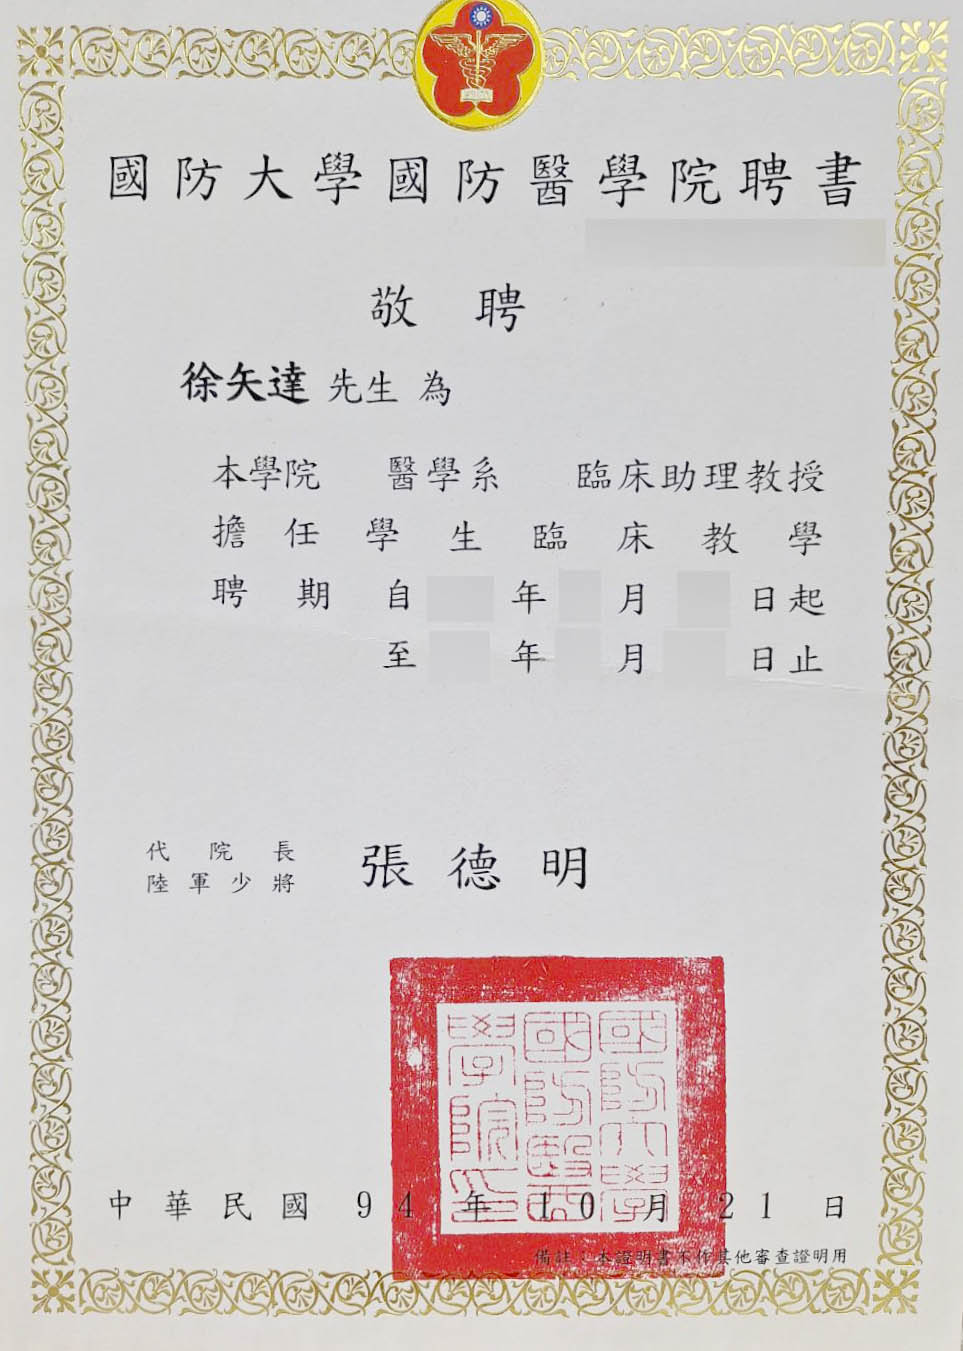 國防大學國防醫學院聘書
敬聘
徐矢達 先生 為
本學院 醫學系 臨床助理教授
擔任學生臨床教學
聘期自 年 月 日起
至 年 月 日止
代院長
陸軍少將
張德明
國防大學
國防醫
學院印
中華民國94年10月21日
備註：本證明書不作其他審查證明用